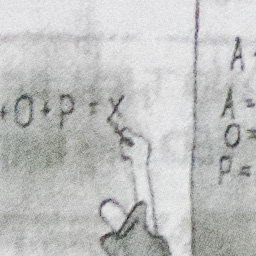 +O+P=X
A
A=
O=
P=